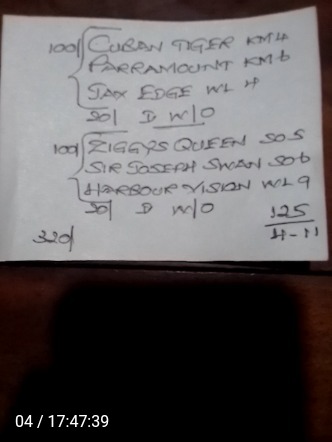 100/ CUBAN TIGER KM4
PARRAMOUNT KM6
JAX EDGE WL 4
50/ D W/O
100/ ZIGGYS QUEEN SO5
SIR JOSEPH SWAN SO6
HARBOUR VISION WL9
50/ D W/O
125
320/
4-11
04 / 17:47:39